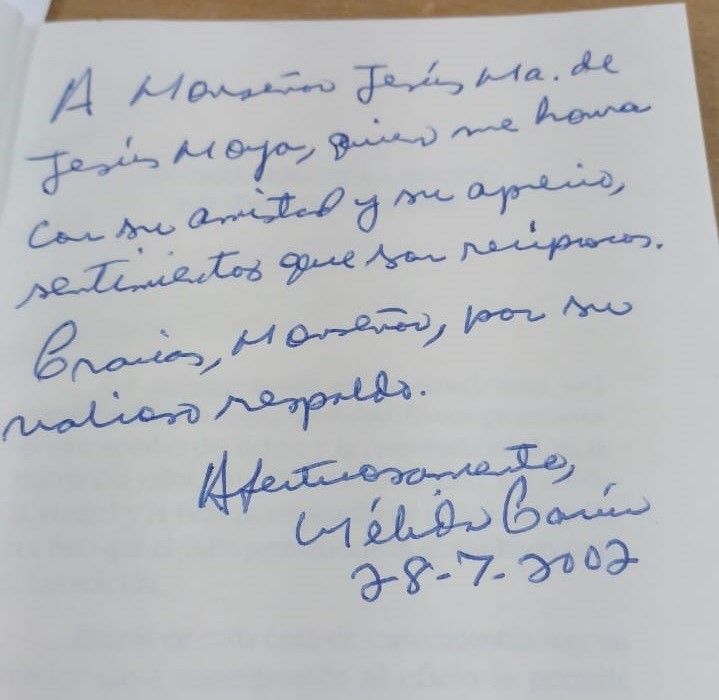 A Monseñor Jesús Ma. de
Jesús Moya, quien me honra
con su amistad y su aprecio,
sentimientos que son recíprocos.
Gracias, Monseñor, por su
valioso respaldo.
Afectuosamente,
Mélida García
28-7-2002